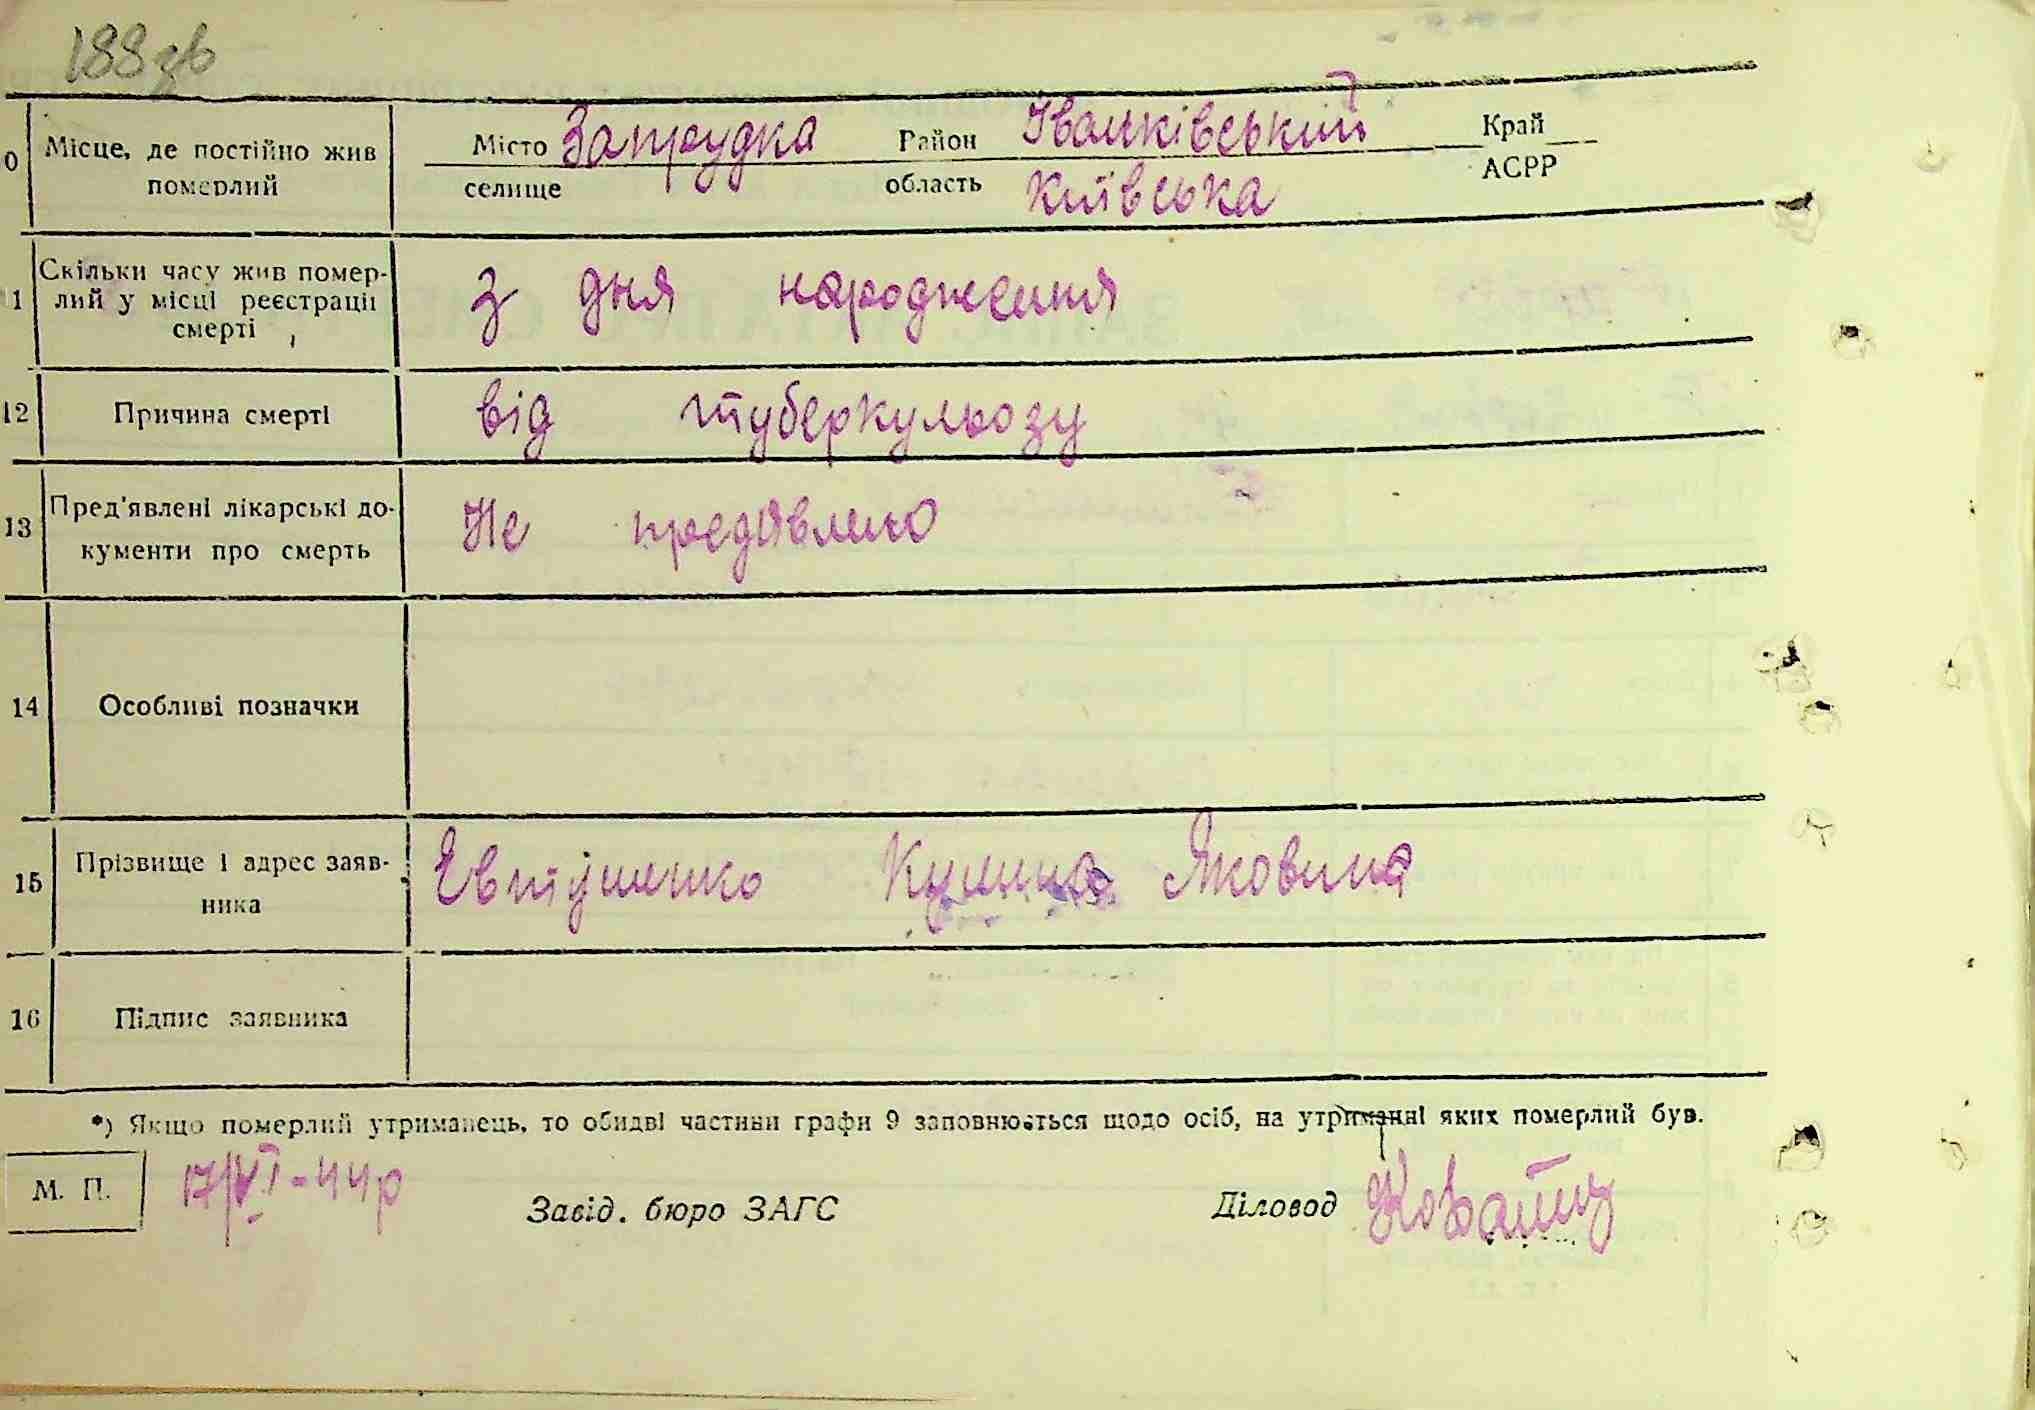 188зв
0 Місце, де постійно жив померлий
Місто Запрудка Район Іванківський Край
селище область Київська АСРР
1 Скільки часу жив помер-
лий у місці реєстрації
смерті
з дня народження
12 Причина смерті від туберкульозу
13 Пред'явлені лікарські до-
кументи про смерть
Не предявлено
14 Особливі позначки
15 Прізвище і адрес заяв-
ника
Євтушенко Яковина
16 Підпис заявника
*) Якщо померлий утриманець, то обидві частини графи 9 заповнюються щодо осіб, на утриманні яких померлий був.
М. П. 17/VI-44р Завід. бюро ЗАГС Діловод